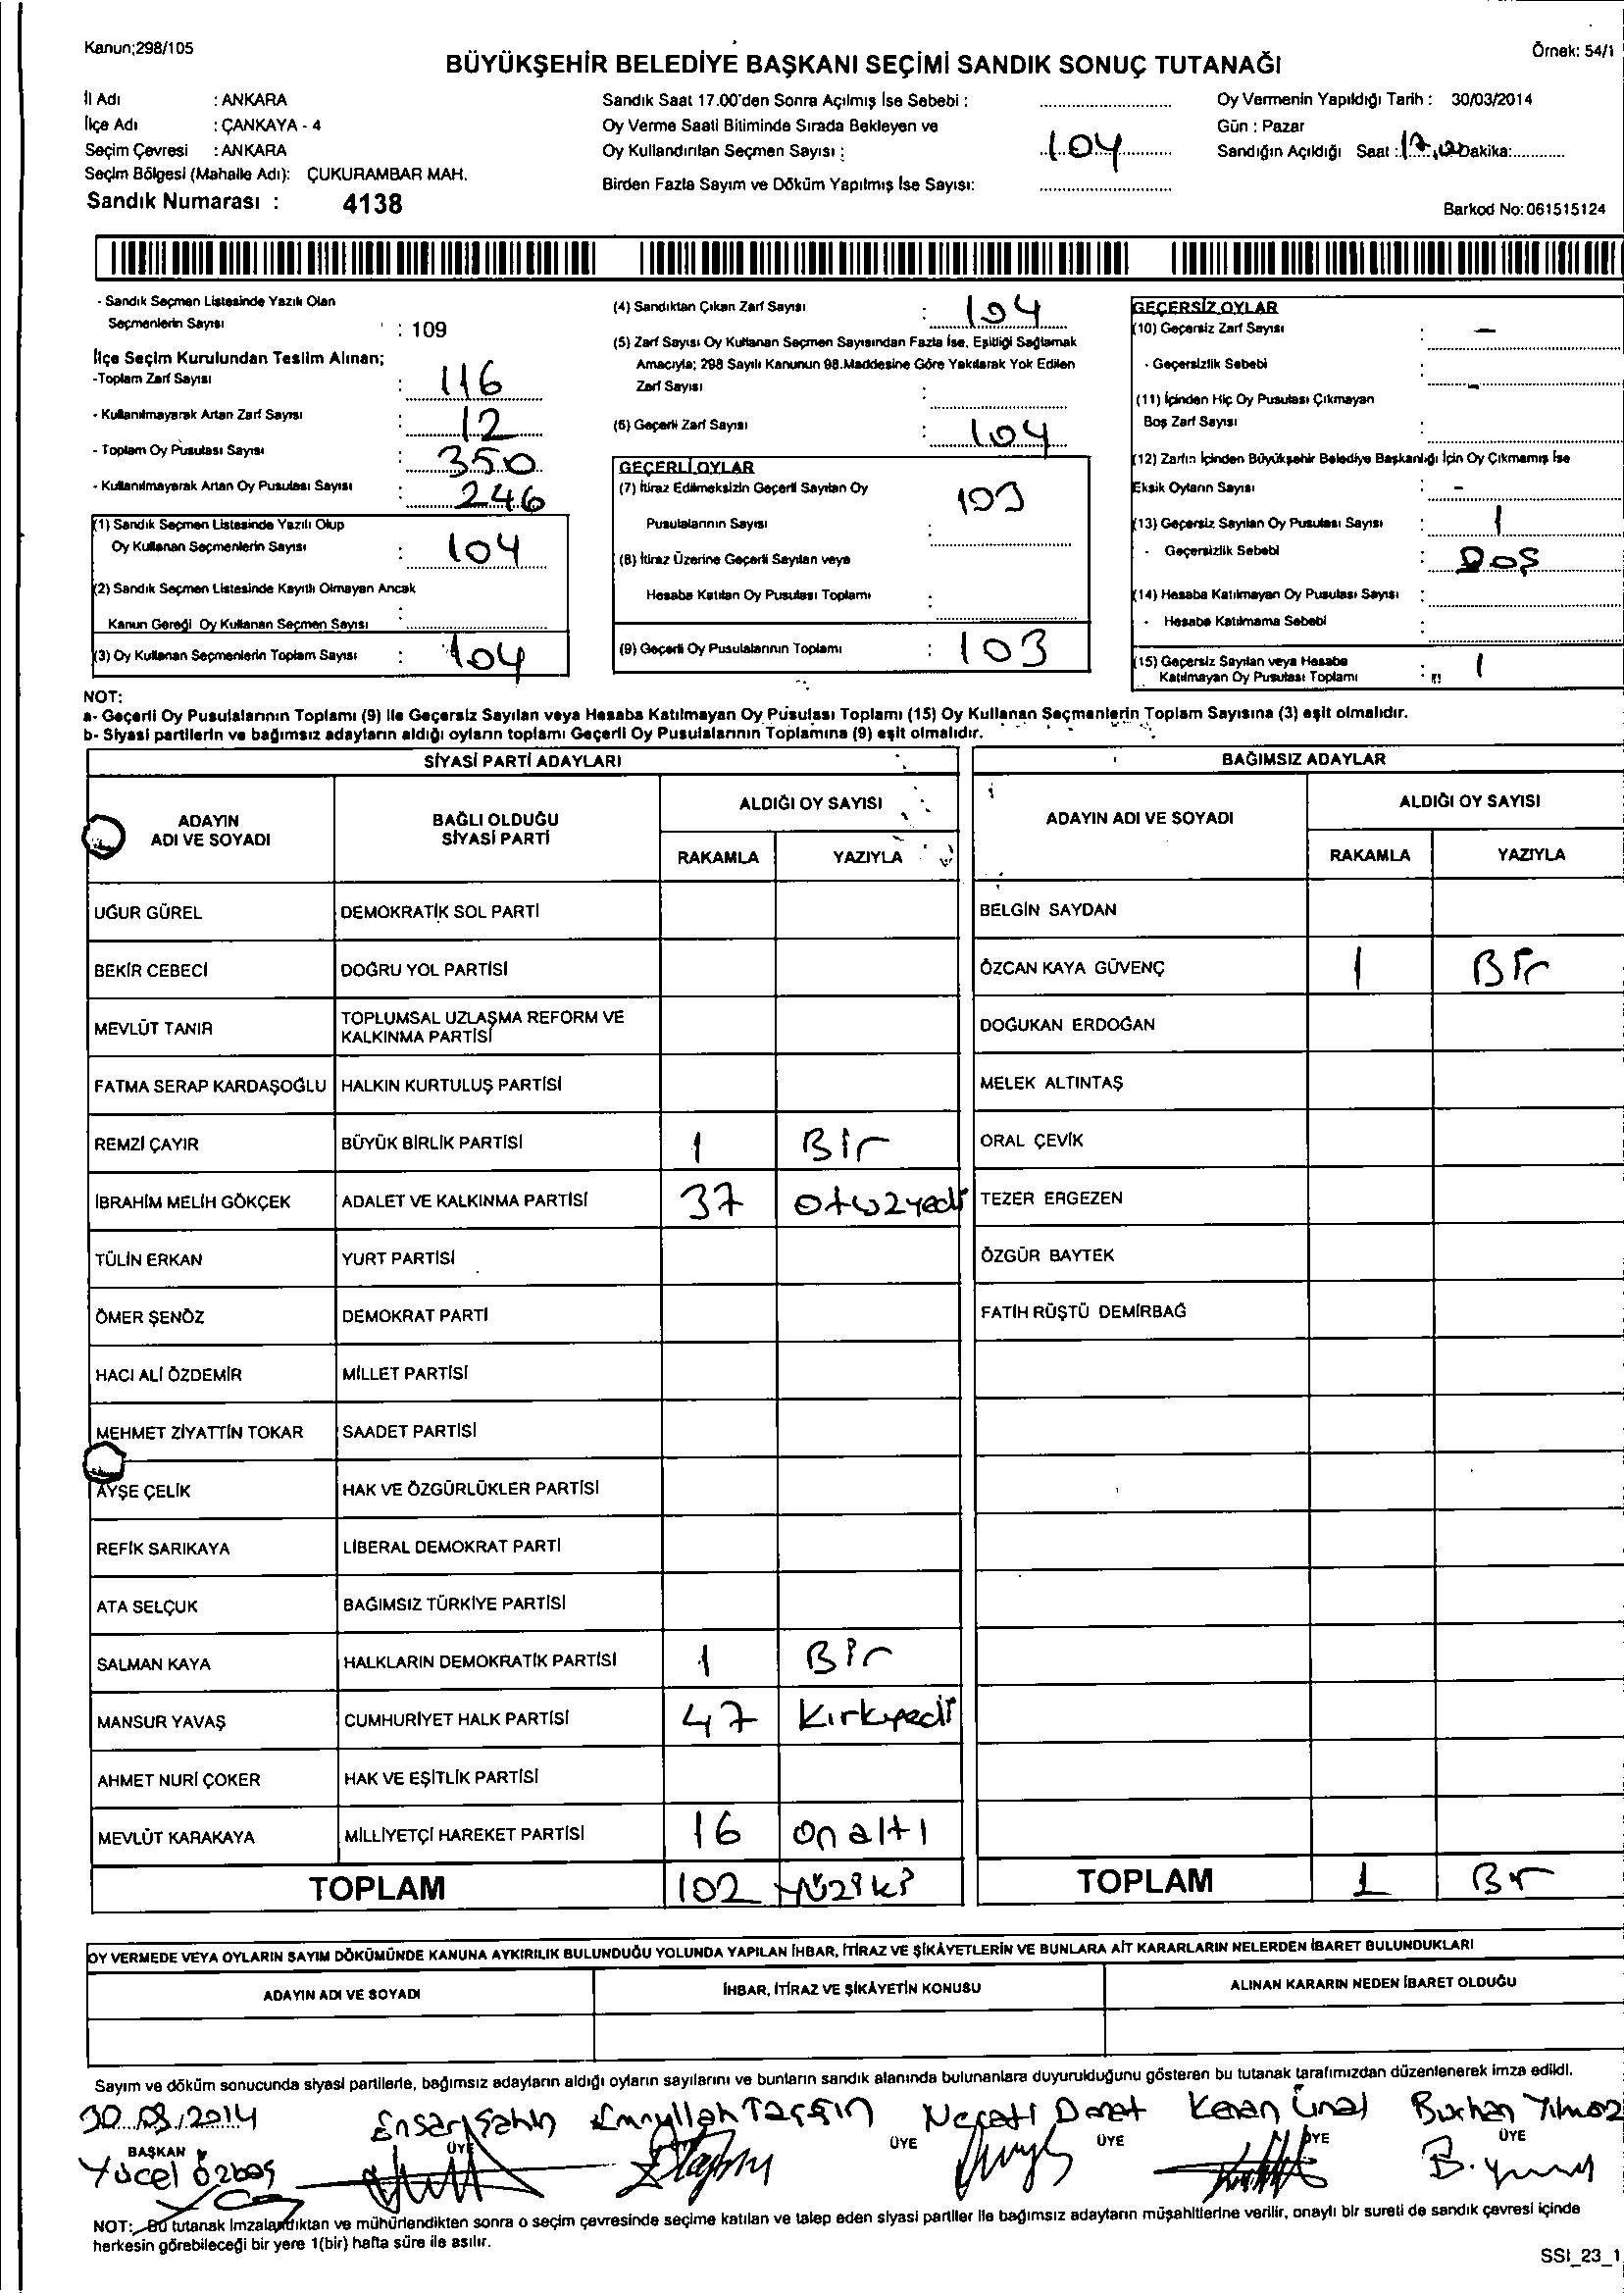 Kanun;298/105
Örnek: 54/1
BÜYÜKŞEHİR BELEDİYE BAŞKANI SEÇİMİ SANDIK SONUÇ TUTANAĞI
İl Adı : ANKARA
İlçe Adı : ÇANKAYA - 4
Seçim Çevresi : ANKARA
Seçim Bölgesi (Mahalle Adı): ÇUKURAMBAR MAH.
Sandık Numarası : 4138
Sandık Saat 17.00'den Sonra Açılmış İse Sebebi :
Oy Verme Saati Bitiminde Sırada Bekleyen ve
Oy Kullandırılan Seçmen Sayısı : 104
Birden Fazla Sayım ve Döküm Yapılmış İse Sayısı:
Oy Vermenin Yapıldığı Tarih : 30/03/2014
Gün : Pazar
Sandığın Açıldığı Saat : 17, Dakika:
Barkod No: 061515124
- Sandık Seçmen Listesinde Yazılı Olan
Seçmenlerin Sayısı : 109
İlçe Seçim Kurulundan Teslim Alınan;
-Toplam Zarf Sayısı : 116
- Kullanılmayarak Artan Zarf Sayısı : 12
- Toplam Oy Pusulası Sayısı : 350
- Kullanılmayarak Artan Oy Pusulası Sayısı : 246
(1) Sandık Seçmen Listesinde Yazılı Olup
Oy Kullanan Seçmenlerin Sayısı : 104
(2) Sandık Seçmen Listesinde Kayıtlı Olmayan Ancak
Kanun Gereği Oy Kullanan Seçmen Sayısı :
(3) Oy Kullanan Seçmenlerin Toplam Sayısı : 104
(4) Sandıktan Çıkan Zarf Sayısı : 104
(5) Zarf Sayısı Oy Kullanan Seçmen Sayısından Fazla İse, Eşitliği Sağlamak
Amacıyla; 298 Sayılı Kanunun 98.Maddesine Göre Yakılarak Yok Edilen
Zarf Sayısı :
(6) Geçerli Zarf Sayısı : 104
GEÇERLİ OYLAR
(7) İtiraz Edilmeksizin Geçerli Sayılan Oy
Pusulalarının Sayısı : 103
(8) İtiraz Üzerine Geçerli Sayılan veya
Hesaba Katılan Oy Pusulası Toplamı :
(9) Geçerli Oy Pusulalarının Toplamı : 103
GEÇERSİZ OYLAR
(10) Geçersiz Zarf Sayısı : -
- Geçersizlik Sebebi : -
(11) İçinden Hiç Oy Pusulası Çıkmayan
Boş Zarf Sayısı :
(12) Zarfın İçinden Büyükşehir Belediye Başkanlığı İçin Oy Çıkmamış İse
Eksik Oyların Sayısı : -
(13) Geçersiz Sayılan Oy Pusulası Sayısı : 1
- Geçersizlik Sebebi : Boş
(14) Hesaba Katılmayan Oy Pusulası Sayısı :
- Hesaba Katılmama Sebebi :
(15) Geçersiz Sayılan veya Hesaba
Katılmayan Oy Pusulası Toplamı : 1
NOT:
a- Geçerli Oy Pusulalarının Toplamı (9) ile Geçersiz Sayılan veya Hesaba Katılmayan Oy Pusulası Toplamı (15) Oy Kullanan Seçmenlerin Toplam Sayısına (3) eşit olmalıdır.
b- Siyasi partilerin ve bağımsız adayların aldığı oyların toplamı Geçerli Oy Pusulalarının Toplamına (9) eşit olmalıdır.
SİYASİ PARTİ ADAYLARI
ADAYIN ADI VE SOYADI BAĞLI OLDUĞU SİYASİ PARTİ ALDIĞI OY SAYISI
RAKAMLA YAZIYLA
UĞUR GÜREL DEMOKRATİK SOL PARTİ
BEKİR CEBECİ DOĞRU YOL PARTİSİ
MEVLÜT TANIR TOPLUMSAL UZLAŞMA REFORM VE
KALKINMA PARTİSİ
FATMA SERAP KARDAŞOĞLU HALKIN KURTULUŞ PARTİSİ
REMZİ ÇAYIR BÜYÜK BİRLİK PARTİSİ 1 Bir
İBRAHİM MELİH GÖKÇEK ADALET VE KALKINMA PARTİSİ 37 otuzyedi
TÜLİN ERKAN YURT PARTİSİ
ÖMER ŞENÖZ DEMOKRAT PARTİ
HACI ALİ ÖZDEMİR MİLLET PARTİSİ
MEHMET ZİYATTİN TOKAR SAADET PARTİSİ
AYŞE ÇELİK HAK VE ÖZGÜRLÜKLER PARTİSİ
REFİK SARIKAYA LİBERAL DEMOKRAT PARTİ
ATA SELÇUK BAĞIMSIZ TÜRKİYE PARTİSİ
SALMAN KAYA HALKLARIN DEMOKRATİK PARTİSİ 1 Bir
MANSUR YAVAŞ CUMHURİYET HALK PARTİSİ 47 Kırkyedi
AHMET NURİ ÇOKER HAK VE EŞİTLİK PARTİSİ
MEVLÜT KARAKAYA MİLLİYETÇİ HAREKET PARTİSİ 16 onaltı
TOPLAM 102 Yüziki
BAĞIMSIZ ADAYLAR
ADAYIN ADI VE SOYADI ALDIĞI OY SAYISI
RAKAMLA YAZIYLA
BELGİN SAYDAN
ÖZCAN KAYA GÜVENÇ 1 Bir
DOĞUKAN ERDOĞAN
MELEK ALTINTAŞ
ORAL ÇEVİK
TEZER ERGEZEN
ÖZGÜR BAYTEK
FATİH RÜŞTÜ DEMİRBAĞ
TOPLAM 1 Br
OY VERMEDE VEYA OYLARIN SAYIM DÖKÜMÜNDE KANUNA AYKIRILIK BULUNDUĞU YOLUNDA YAPILAN İHBAR, İTİRAZ VE ŞİKÂYETLERİN VE BUNLARA AİT KARARLARIN NELERDEN İBARET BULUNDUKLARI
ADAYIN ADI VE SOYADI İHBAR, İTİRAZ VE ŞİKÂYETİN KONUSU ALINAN KARARIN NEDEN İBARET OLDUĞU
Sayım ve döküm sonucunda siyasi partilerle, bağımsız adayların aldığı oyların sayılarını ve bunların sandık alanında bulunanlara duyurulduğunu gösteren bu tutanak tarafımızdan düzenlenerek imza edildi.
30.03.2014 Ensar Şahin Necati Kenan Ünal Burhan Yılmaz
BAŞKAN ÜYE ÜYE ÜYE ÜYE ÜYE
Yücel Özbaş B.
NOT: Bu tutanak imzalandıktan ve mühürlendikten sonra o seçim çevresinde seçime katılan ve talep eden siyasi partiler ile bağımsız adayların müşahitlerine verilir, onaylı bir sureti de sandık çevresi içinde
herkesin görebileceği bir yere 1(bir) hafta süre ile asılır.
SSI_23_1